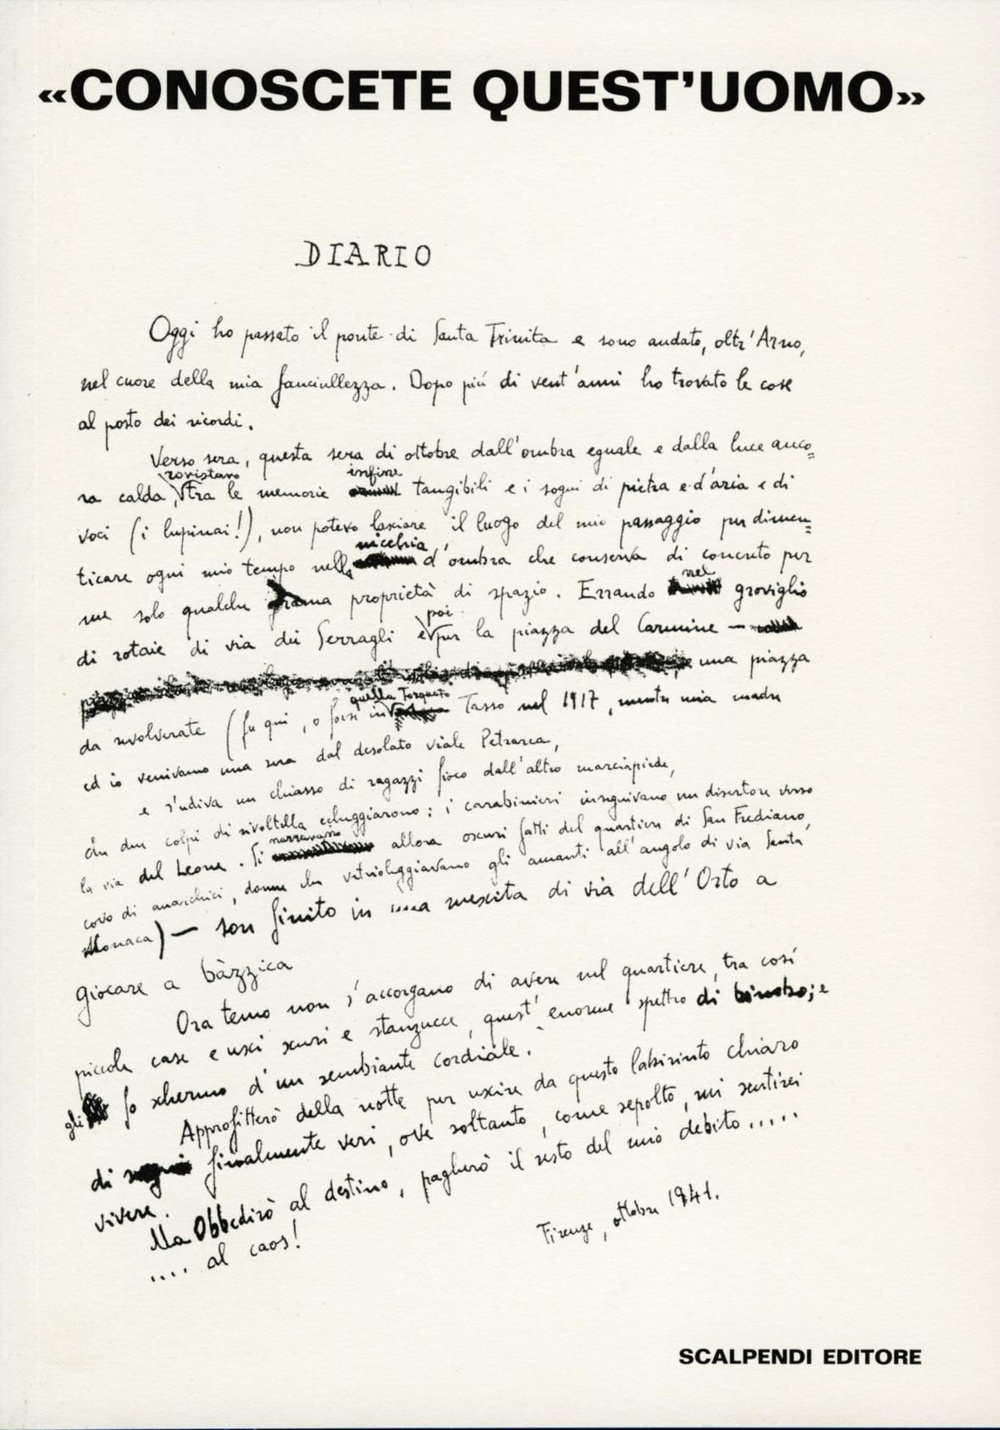 «CONOSCETE QUEST'UOMO»
DIARIO
Oggi ho passato il ponte di Santa Trinita e sono andato, oltr'Arno,
nel cuore della mia fanciullezza. Dopo più di vent'anni ho trovato le cose
al posto dei ricordi.
Verso sera, questa sera di ottobre dall'ombra eguale e dalla luce anco=
rovistare infine
ra calda, tra le memorie tangibili e i sogni di pietra e d'aria e di
voci (i lupinai!), non potevo lasciare il luogo del mio passaggio per dimen=
nicchia
ticare ogni mio tempo nella d'ombra che conserva di concreto per
me solo qualche proprietà di spazio. Errando nel groviglio
poi
di rotaie di via dei Serragli e per la piazza del Carmine —
una piazza
quella Torquato
da revolverate (fu qui, o forse in Tasso nel 1917, mentre mia madre
ed io venivamo una sera dal desolato viale Petrarca,
e s'udiva un chiasso di ragazzi fioco dall'altro marciapiede,
che due colpi di rivoltella echeggiarono: i carabinieri inseguivano un disertore verso
narravano
la via del Leone. Si allora oscuri fatti del quartiere di San Frediano,
covo di anarchici, donne che vetrioleggiavano gli amanti all'angolo di via Santa
Monaca) — son finito in una mescita di via dell'Orto a
giocare a bàzzica
Ora temo non s'accorgano di avere nel quartiere, tra così
piccole case e usci scuri e stanzucce, quest'enorme spettro di bimbo; e
gli fo schermo d'un sembiante cordiale.
Approfitterò della notte per uscire da questo labirinto chiaro
di finalmente veri, ove soltanto, come sepolto, mi sentirei
vivere.
Ma Obbedirò al destino, pagherò il resto del mio debito.....
.... al caos!
Firenze, ottobre 1941.
SCALPENDI EDITORE